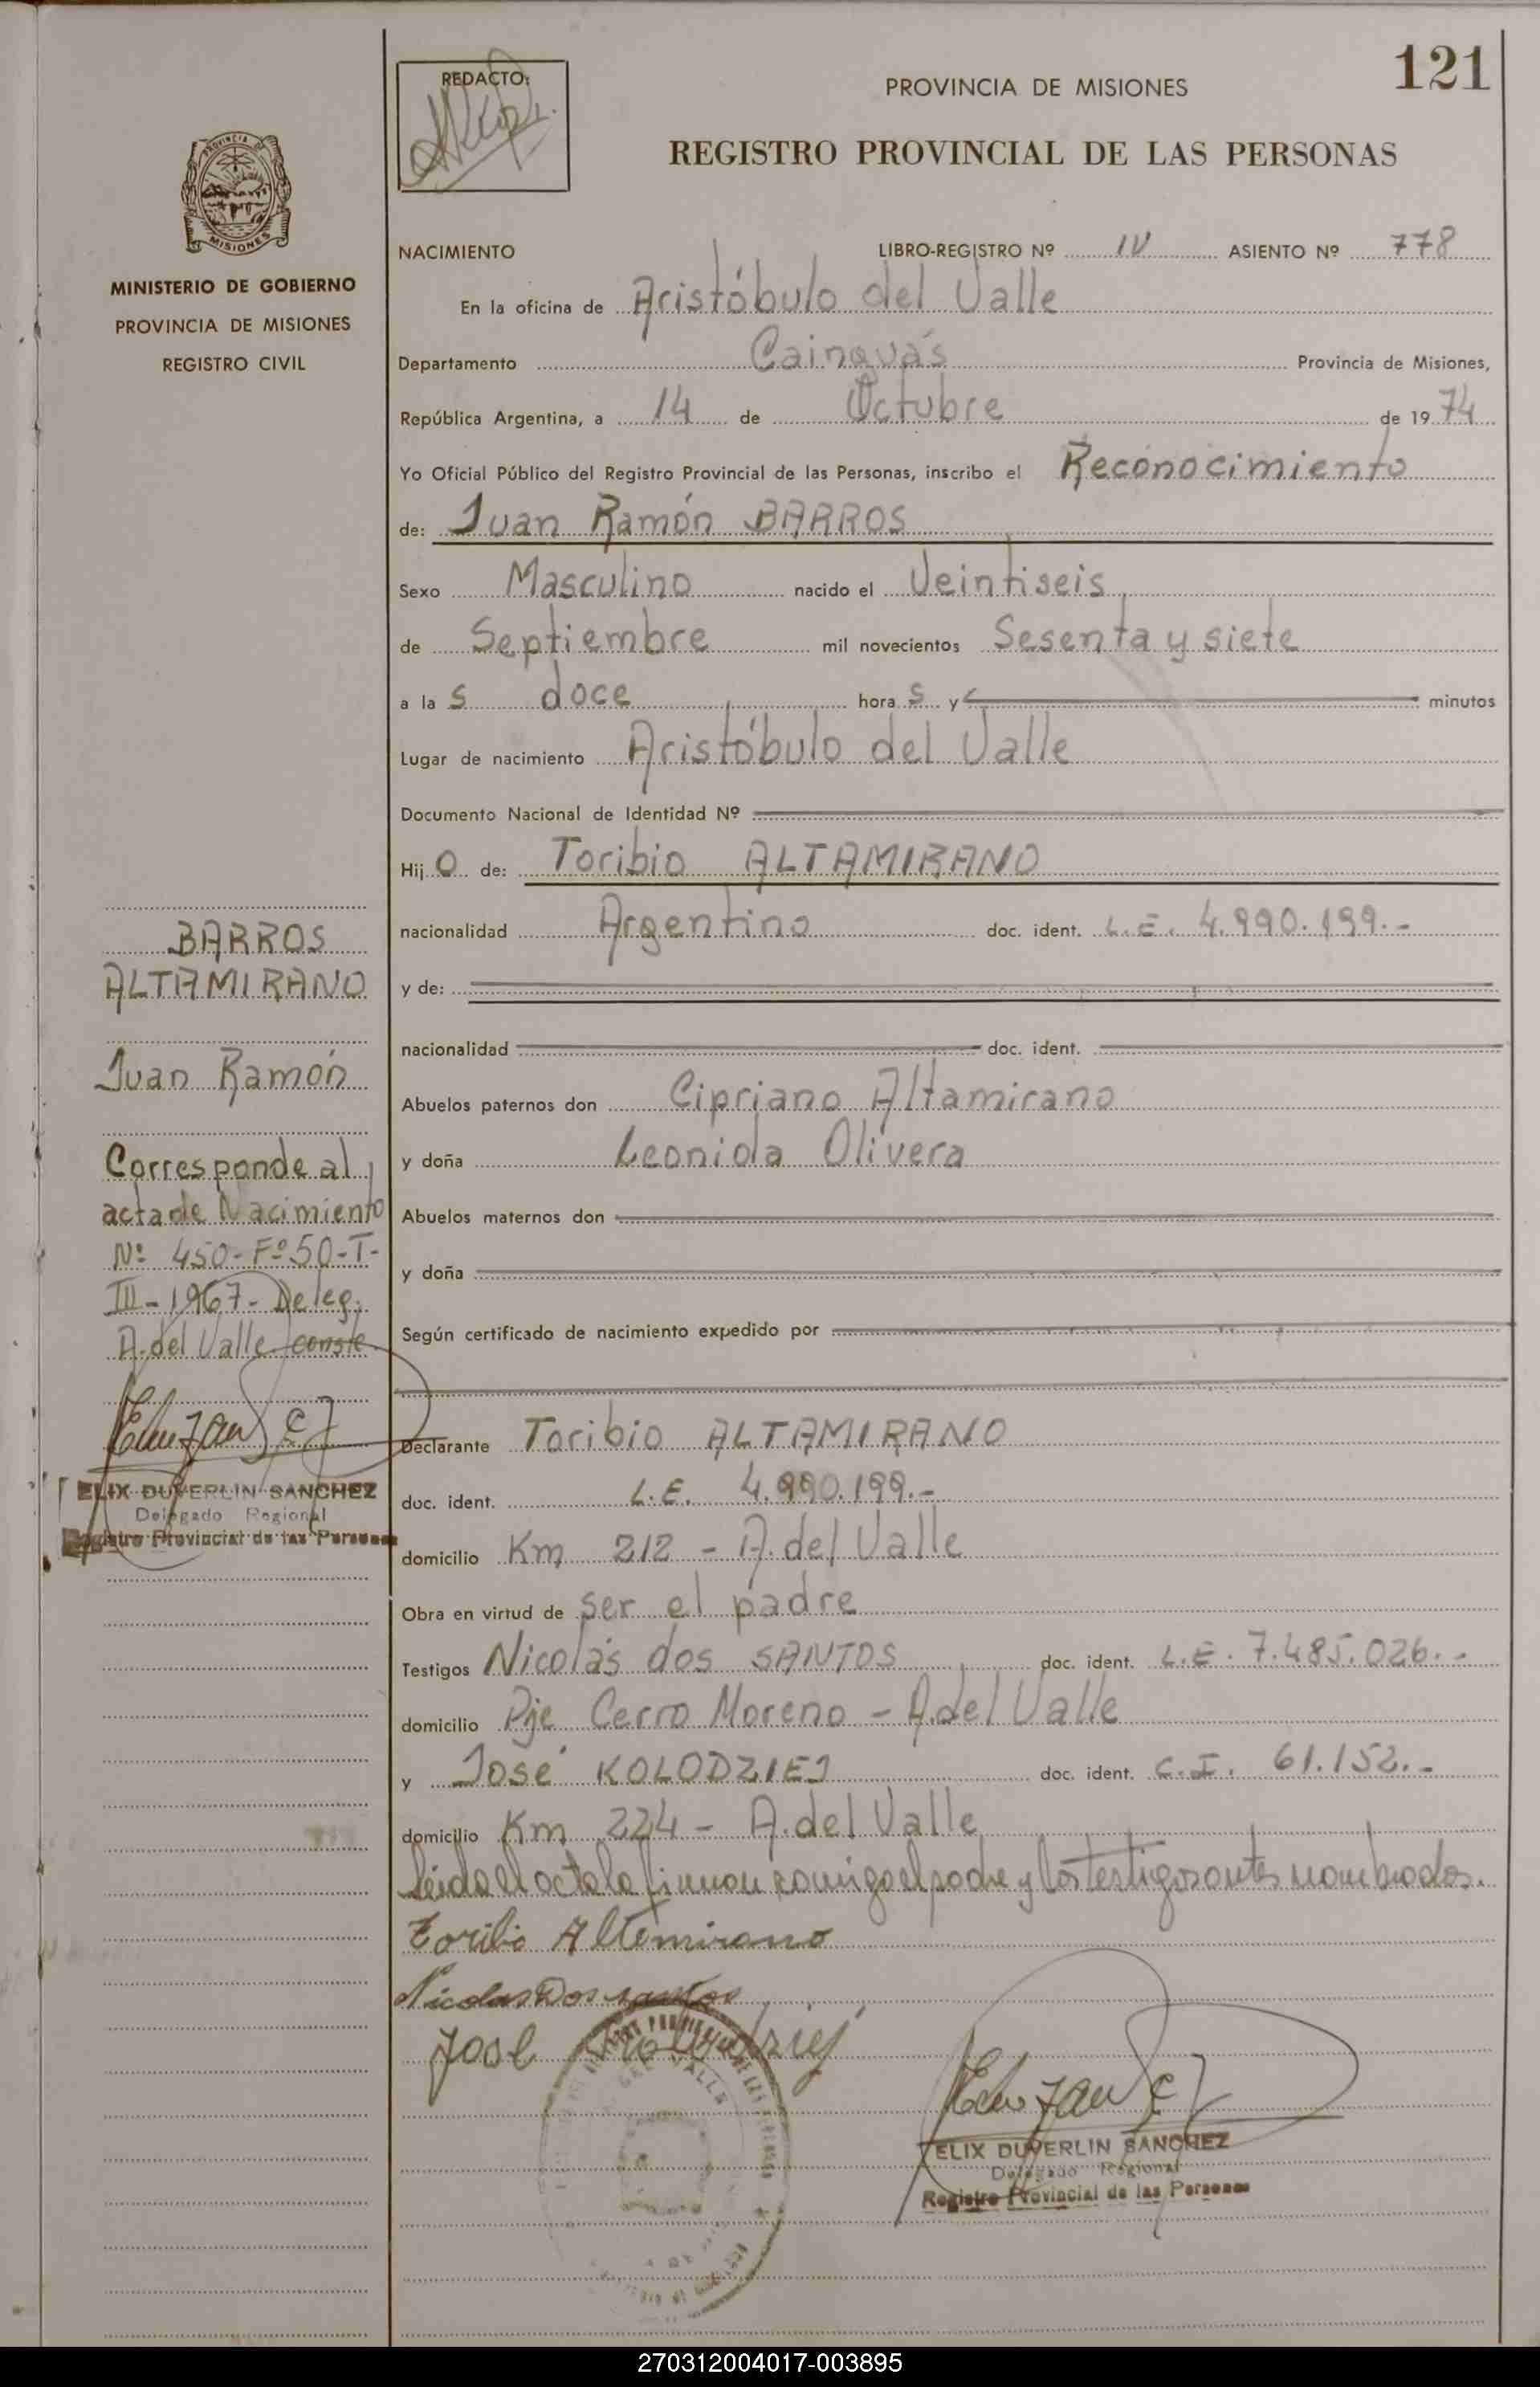 121
REDACTO:
PROVINCIA DE MISIONES
REGISTRO PROVINCIAL DE LAS PERSONAS
PROVINCIA DE
MISIONES
MINISTERIO DE GOBIERNO
PROVINCIA DE MISIONES
REGISTRO CIVIL
NACIMIENTO LIBRO-REGISTRO Nº IV ASIENTO Nº 778
En la oficina de Aristóbulo del Valle
Departamento Cainguás Provincia de Misiones,
República Argentina, a 14 de Octubre de 1974
Yo Oficial Público del Registro Provincial de las Personas, inscribo el Reconocimiento
de: Juan Ramón BARROS
Sexo Masculino nacido el Veintiseis
de Septiembre mil novecientos Sesenta y siete
a las doce horas y minutos
Lugar de nacimiento Aristóbulo del Valle
Documento Nacional de Identidad Nº
Hijo de: Toribio ALTAMIRANO
nacionalidad Argentino doc. ident. L.E. 4.990.199.-
y de:
nacionalidad doc. ident.
Abuelos paternos don Cipriano Altamirano
y doña Leonida Olivera
Abuelos maternos don
y doña
Según certificado de nacimiento expedido por
Declarante Toribio ALTAMIRANO
doc. ident. L.E. 4.990.199.-
domicilio Km 212 - A. del Valle
Obra en virtud de ser el padre
Testigos Nicolás dos SANTOS doc. ident. L.E. 7.485.026.-
domicilio Pje Cerro Moreno - A. del Valle
y José KOLODZIEJ doc. ident. C.I. 61.152.-
domicilio Km 224 - A. del Valle
Leida el acta la firman conmigo el padre y los testigos antes nombrados.
Toribio Altamirano
Nicolas Dos santos
José Kolodziej
ELIX DUVERLIN SANCHEZ
Delegado Regional
Registro Provincial de las Personas
BARROS
ALTAMIRANO
Juan Ramón
Corresponde al
acta de Nacimiento
Nº 450-Fº50-T-
III-1967- Deleg.
A. del Valle conste
ELIX DUVERLIN SANCHEZ
Delegado Regional
Registro Provincial de las Personas
270312004017-003895